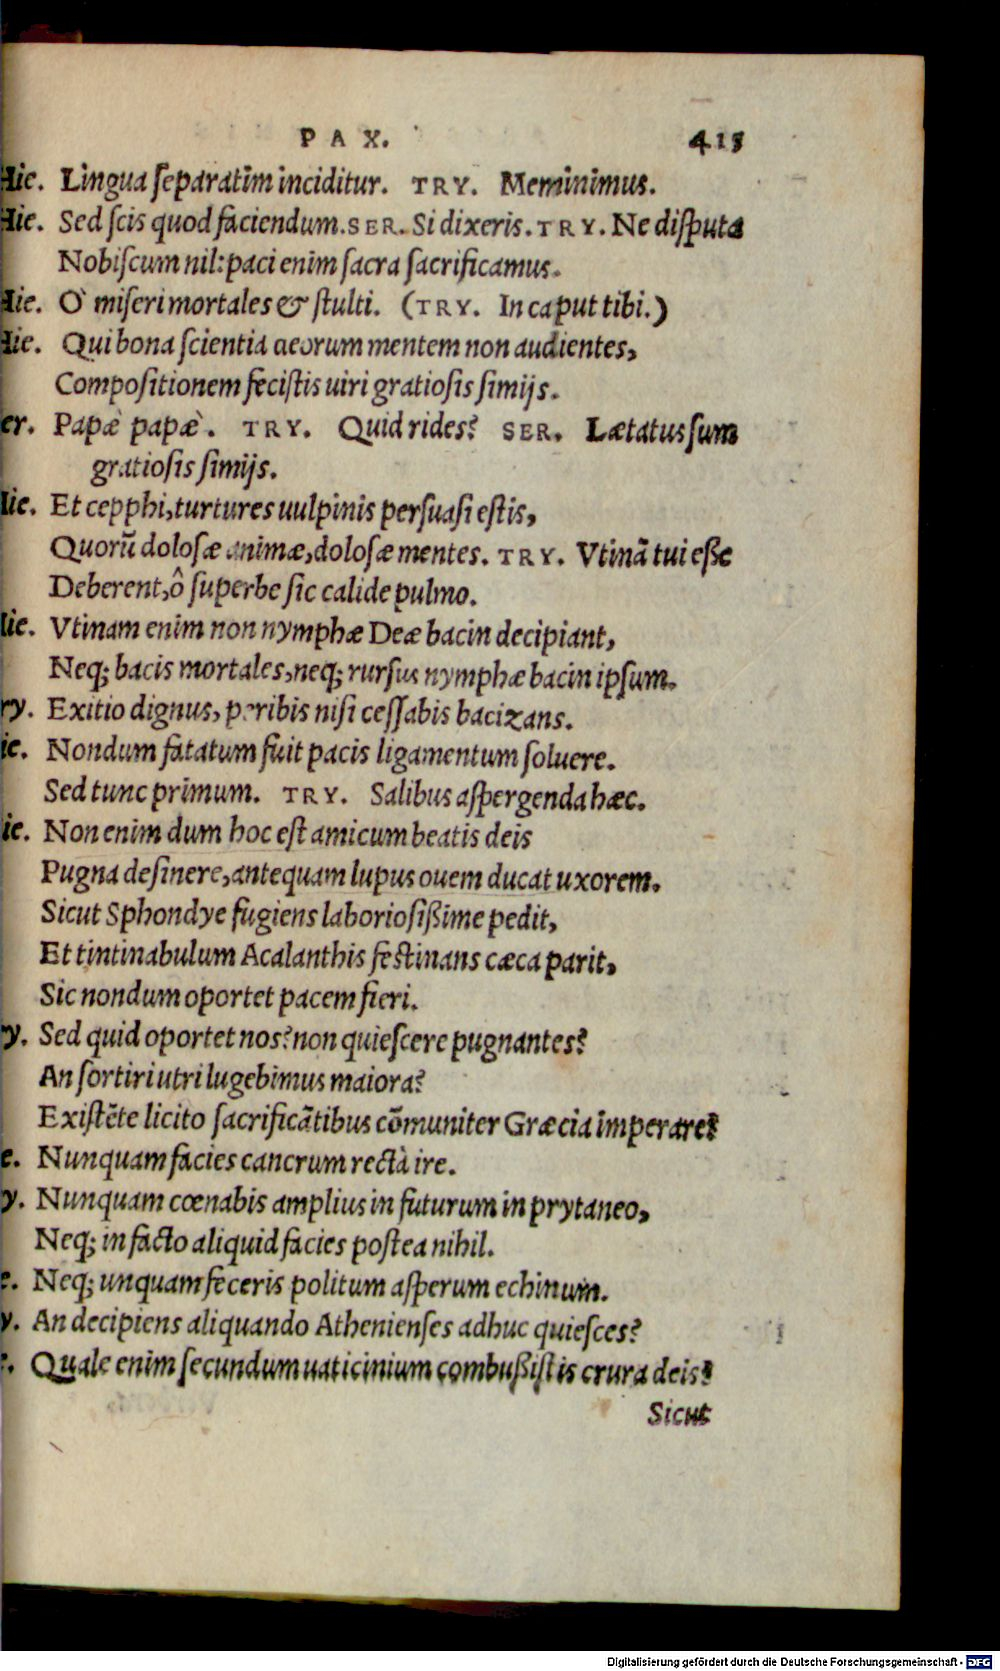 PAX. 415
Hie. Lingua ſeparatim inciditur. TRY. Meminimus.
Hie. Sed ſcis quod faciendum. SER. Si dixeris. TRY. Ne diſputa
Nobiſcum nil: paci enim ſacra ſacrificamus.
Hie. O` miſeri mortales & ſtulti. (TRY. In caput tibi.)
Hie. Qui bona ſcientia deorum mentem non audientes,
Compoſitionem feciſtis uiri gratioſis ſimijs.
er. Papæ` papæ`. TRY. Quid rides? SER. Lætatus ſum
gratioſis ſimijs.
Hie. Et cepphi, turtures uulpinis perſuaſi eſtis,
Quorũ doloſæ animæ, doloſæ mentes. TRY. Vtinã tui eſſe
Deberent, ô ſuperbe ſic calide pulmo.
Hie. Vtinam enim non nymphæ Deæ bacin decipiant,
Neq; bacis mortales, neq; rurſus nymphæ bacin ipſum.
ry. Exitio dignus, peribis niſi ceſſabis bacizans.
ie. Nondum fatatum fuit pacis ligamentum ſoluere.
Sed tunc primum. TRY. Salibus aſpergenda hæc.
ie. Non enim dum hoc eſt amicum beatis deis
Pugna deſinere, antequam lupus ouem ducat uxorem.
Sicut Sphondye fugiens laborioſißime pedit,
Et tintinabulum Acalanthis feſtinans cæca parit,
Sic nondum oportet pacem fieri.
y. Sed quid oportet nos? non quieſcere pugnantes?
An ſortiri utri lugebimus maiora?
Exiſtẽte licito ſacrificãtibus cõmuniter Græcia imperare?
e. Nunquam facies cancrum rectà ire.
y. Nunquam cœnabis amplius in futurum in prytaneo,
Neq; in facto aliquid facies poſtea nihil.
e. Neq; unquam feceris politum aſperum echinum.
y. An decipiens aliquando Athenienſes adhuc quieſces?
e. Quale enim ſecundum uaticinium combußiſtis crura deis?
Sicut
Digitalisierung gefördert durch die Deutsche Forschungsgemeinschaft - DFG